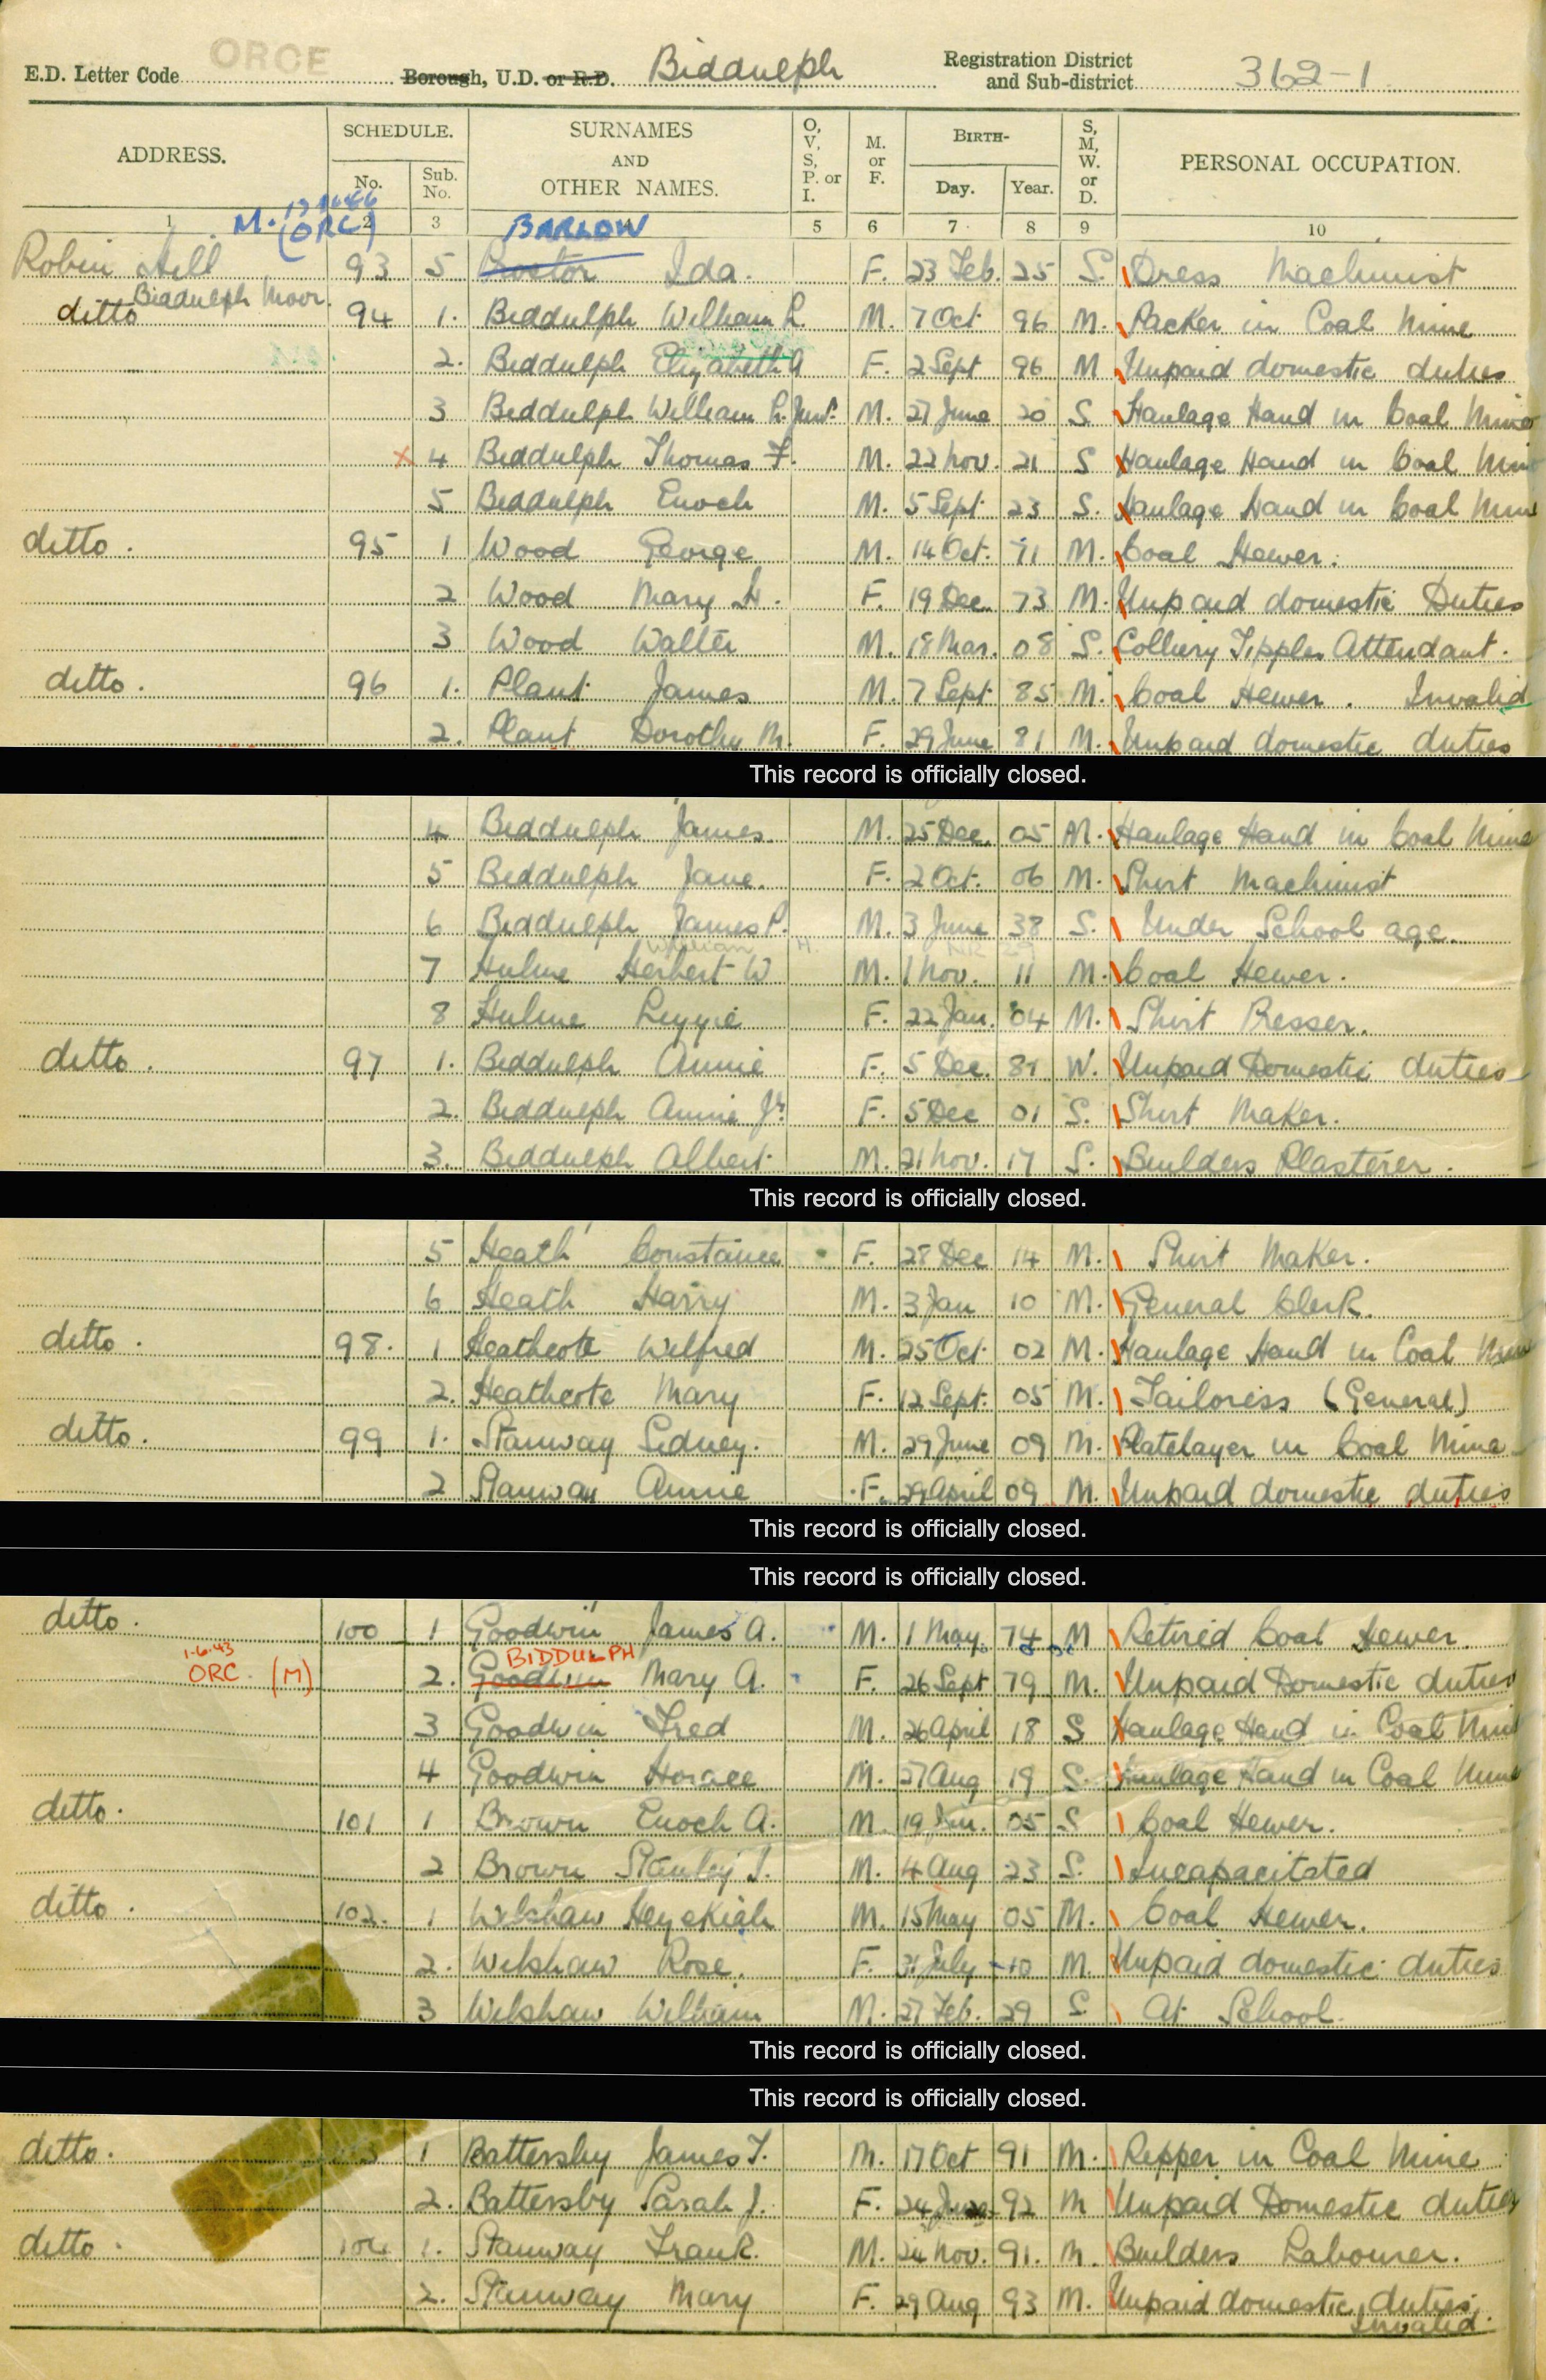 ORCE
E.D. Letter Code Borough, U.D. or R.D. Biddulph Registration District and Sub-district 362-1
ADDRESS. SCHEDULE. No. Sub. No. SURNAMES AND OTHER NAMES. O, V, S, P. or I. M. or F. BIRTH- Day. Year. S, M, W. or D. PERSONAL OCCUPATION.
1 2 3 5 6 7 8 9 10
M. (ORC) BARLOW
Robin Hill 93 5 Proctor Ida. F. 23 Feb. 25 S. Dress Machinist
Biddulph Moor.
ditto 94 1. Biddulph William L. M. 7 Oct 96 M. Packer in Coal Mine
2. Biddulph Elizabeth A F. 2 Sept 96 M Unpaid domestic duties
3 Biddulph William L. Junr. M. 27 June 20 S. Haulage Hand in Coal Mine
x 4 Biddulph Thomas F. M. 22 Nov. 21 S Haulage Hand in Coal Mine
5 Biddulph Enoch M. 5 Sept 23 S. Haulage Hand in Coal Mine
ditto. 95 1 Wood George M. 14 Oct. 71 M. Coal Hewer.
2 Wood Mary H. F. 19 Dec. 73 M. Unpaid domestic Duties
3 Wood Walter M. 18 Mar. 08 S. Colliery Tippler Attendant.
ditto. 96 1. Plant James M. 7 Sept 85 M. Coal Hewer. Invalid
2. Plant Dorothy M. F. 29 June 81 M. Unpaid domestic duties
This record is officially closed.
4 Biddulph James. M. 25 Dec. 05 M. Haulage Hand in Coal Mine
5 Biddulph Jane. F. 2 Oct. 06 M. Shirt Machinist
6 Biddulph James P. M. 3 June 38 S. Under School age.
William H.
7 Hulme Herbert W M. 1 Nov. 11 M. Coal Hewer.
8 Hulme Lizzie F. 22 Jan. 04 M. Shirt Presser.
ditto. 97 1. Biddulph Annie F. 5 Dec. 81 W. Unpaid Domestic duties
2. Biddulph Annie Jr. F. 5 Dec 01 S. Shirt Maker.
3. Biddulph Albert M. 21 Nov. 17 S. Builders Plasterer.
This record is officially closed.
5 Heath Constance F. 28 Dec 14 M. Shirt Maker.
6 Heath Harry M. 3 Jan 10 M. General Clerk.
ditto. 98. 1 Heathcote Wilfred M. 25 Oct. 02 M. Haulage Hand in Coal Mine
2. Heathcote Mary F. 12 Sept. 05 M. Tailoress (General)
ditto. 99 1. Stanway Sidney. M. 29 June 09 M. Platelayer in Coal Mine
2 Stanway Annie F. 29 April 09 M. Unpaid domestic duties
This record is officially closed.
This record is officially closed.
ditto. 100 1 Goodwin James A. M. 1 May 74 M Retired Coal Hewer.
1.6.43 BIDDULPH
ORC. (M) 2. Goodwin Mary A. F. 26 Sept 79 M. Unpaid Domestic duties
3 Goodwin Fred M. 26 April 18 S Haulage Hand in Coal Mine
4 Goodwin Horace M. 27 Aug 19 S. Haulage Hand in Coal Mine
ditto. 101 1 Brown Enoch A. M. 19 Jan. 05 S Coal Hewer.
2 Brown Stanley J. M. 4 Aug 23 S. Incapacitated
ditto. 102. 1 Welshaw Hezekiah M. 15 May 05 M. Coal Hewer.
2. Welshaw Rose. F. 31 July 10 M. Unpaid domestic duties
3 Welshaw William M. 27 Feb. 29 S. At School.
This record is officially closed.
This record is officially closed.
ditto. 1 Battersby James T. M. 17 Oct 91 M. Ripper in Coal Mine
2. Battersby Sarah J. F. 24 92 M Unpaid Domestic duties
ditto. 104 1. Stanway Frank. M. 24 Nov. 91. M. Builders Labourer.
2. Stanway Mary F. 29 Aug 93 M. Unpaid domestic duties.
Invalid.